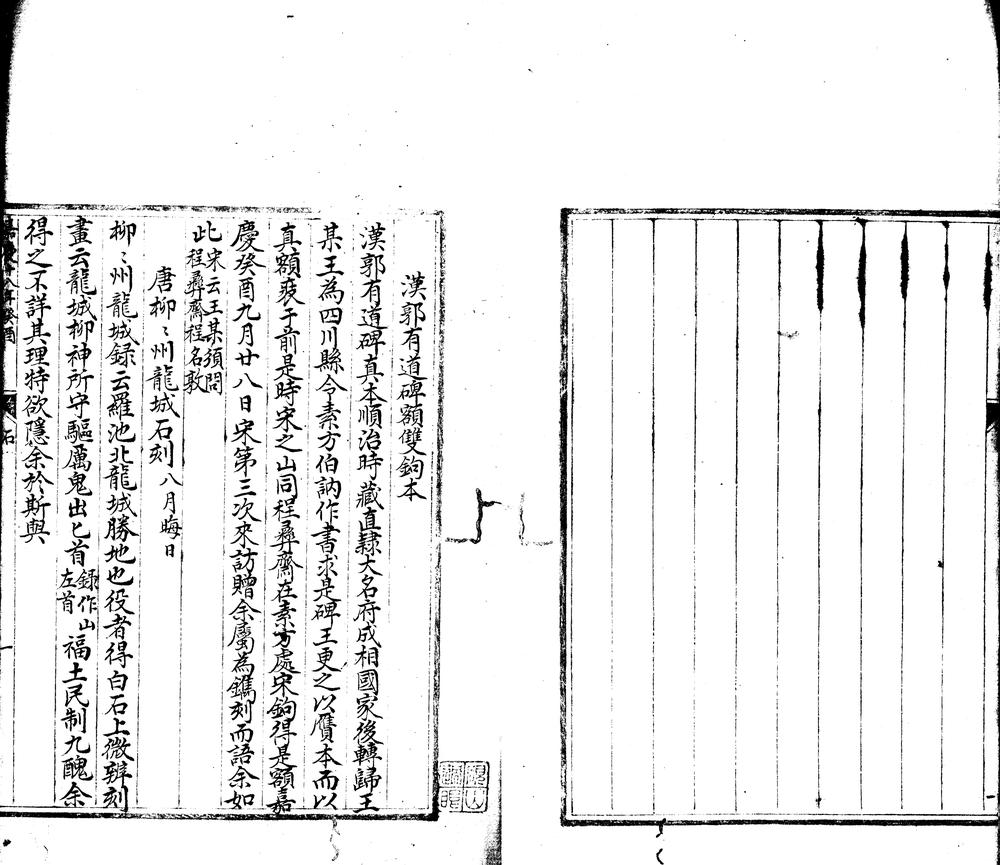 漢郭有道碑額雙鉤本
漢郭有道碑真本順治時藏直隸大名府成相國家後轉歸王
某王為四川縣令素方伯訥作書求是碑王更之以贋本而以
真額裝于前是時宋之山同程彞齋在素方處宋鉤得是額嘉
慶癸酉九月廿八日宋第三次來訪贈余屬為鐫刻而語余如
此宋云王某須問
程彞齋程名敦
唐柳〻州龍城石刻八月晦日
柳〻州龍城録云羅池北龍城勝地也役者得白石上微辨刻
畫云龍城柳神所守驅厲鬼出匕首録作山
左首福土民制九醜余
得之不詳其理特欲隱余於斯與
石